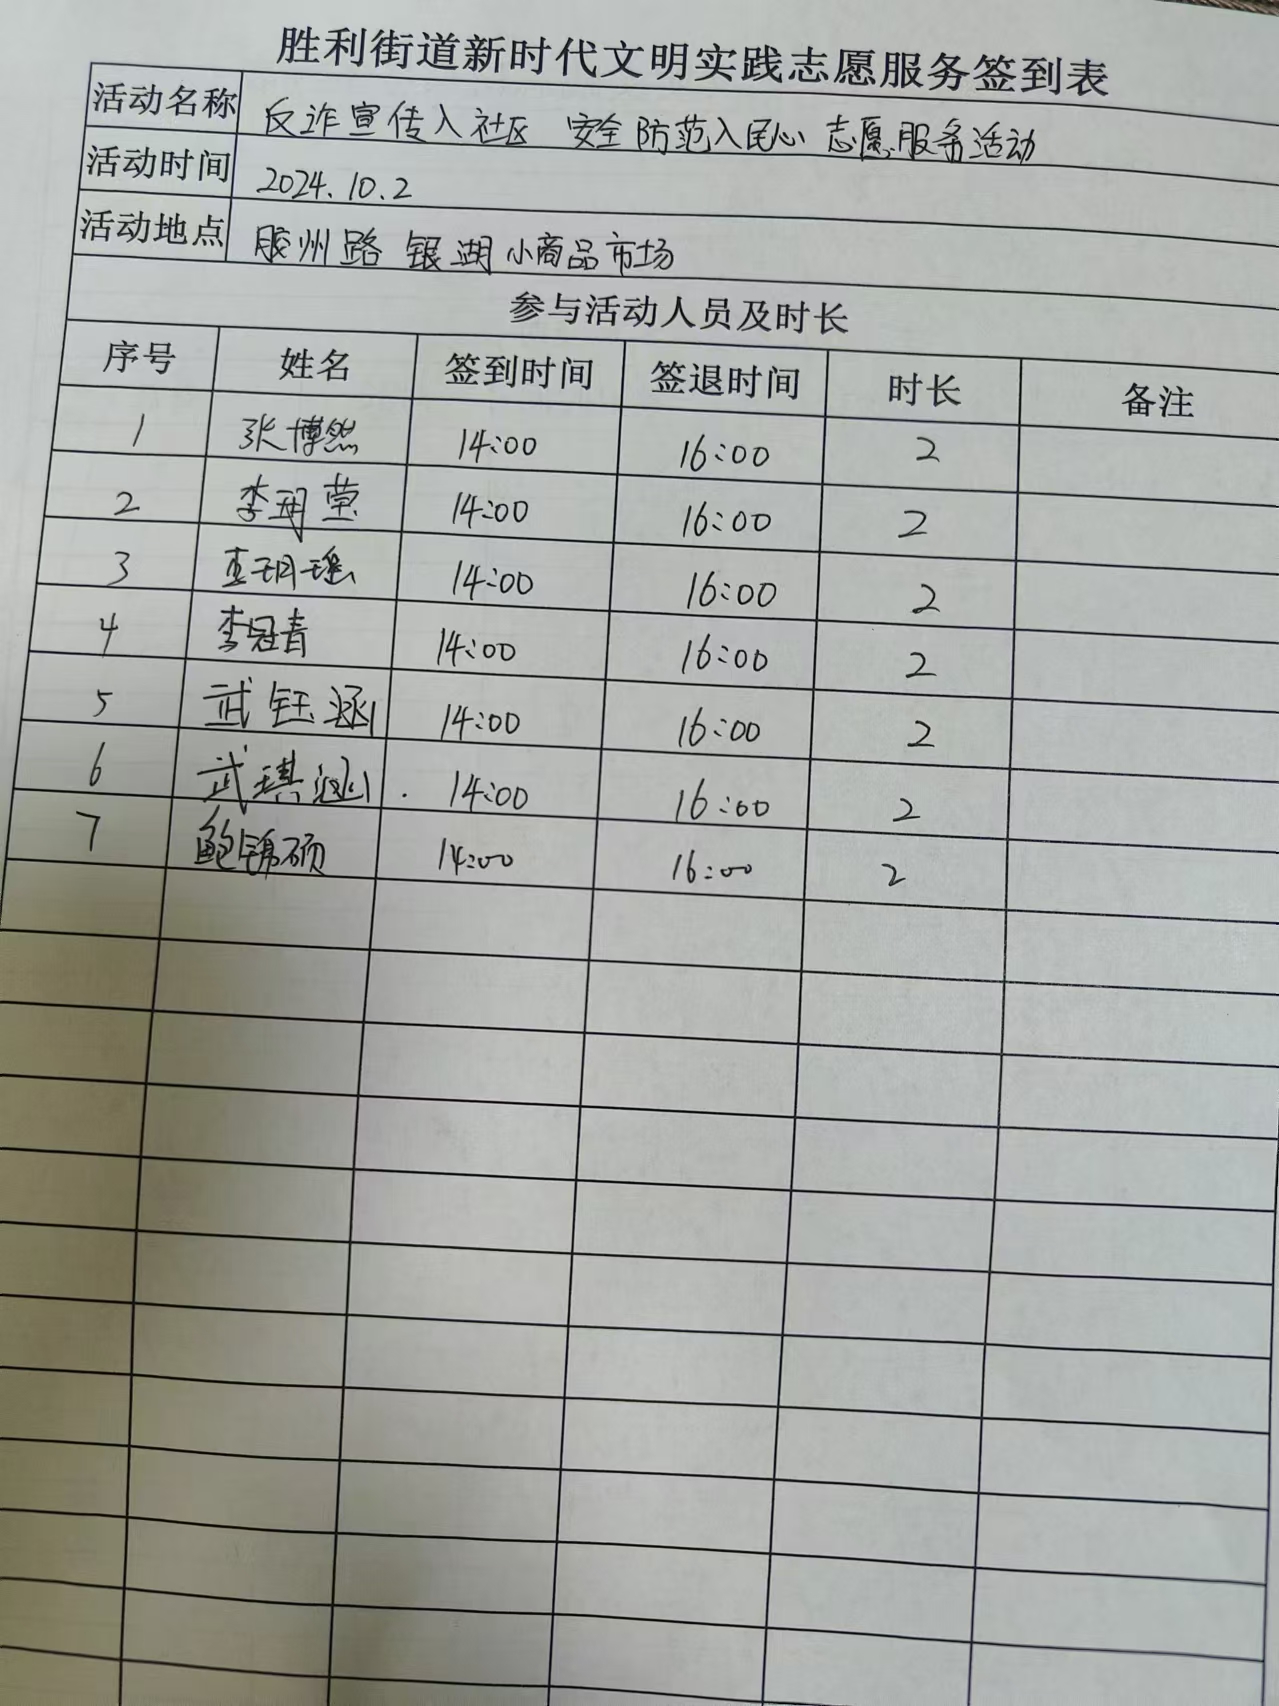 胜利街道新时代文明实践志愿服务签到表
活动名称 反诈宣传入社区 安全防范入民心 志愿服务活动
活动时间 2024.10.2
活动地点 胶州路 银湖小商品市场
参与活动人员及时长
序号 姓名 签到时间 签退时间 时长 备注
1 张博然 14:00 16:00 2
2 李玥莹 14:00 16:00 2
3 玥瑶 14:00 16:00 2
4 李冠青 14:00 16:00 2
5 武钰涵 14:00 16:00 2
6 武琪涵 14:00 16:00 2
7 鲍锦硕 14:00 16:00 2